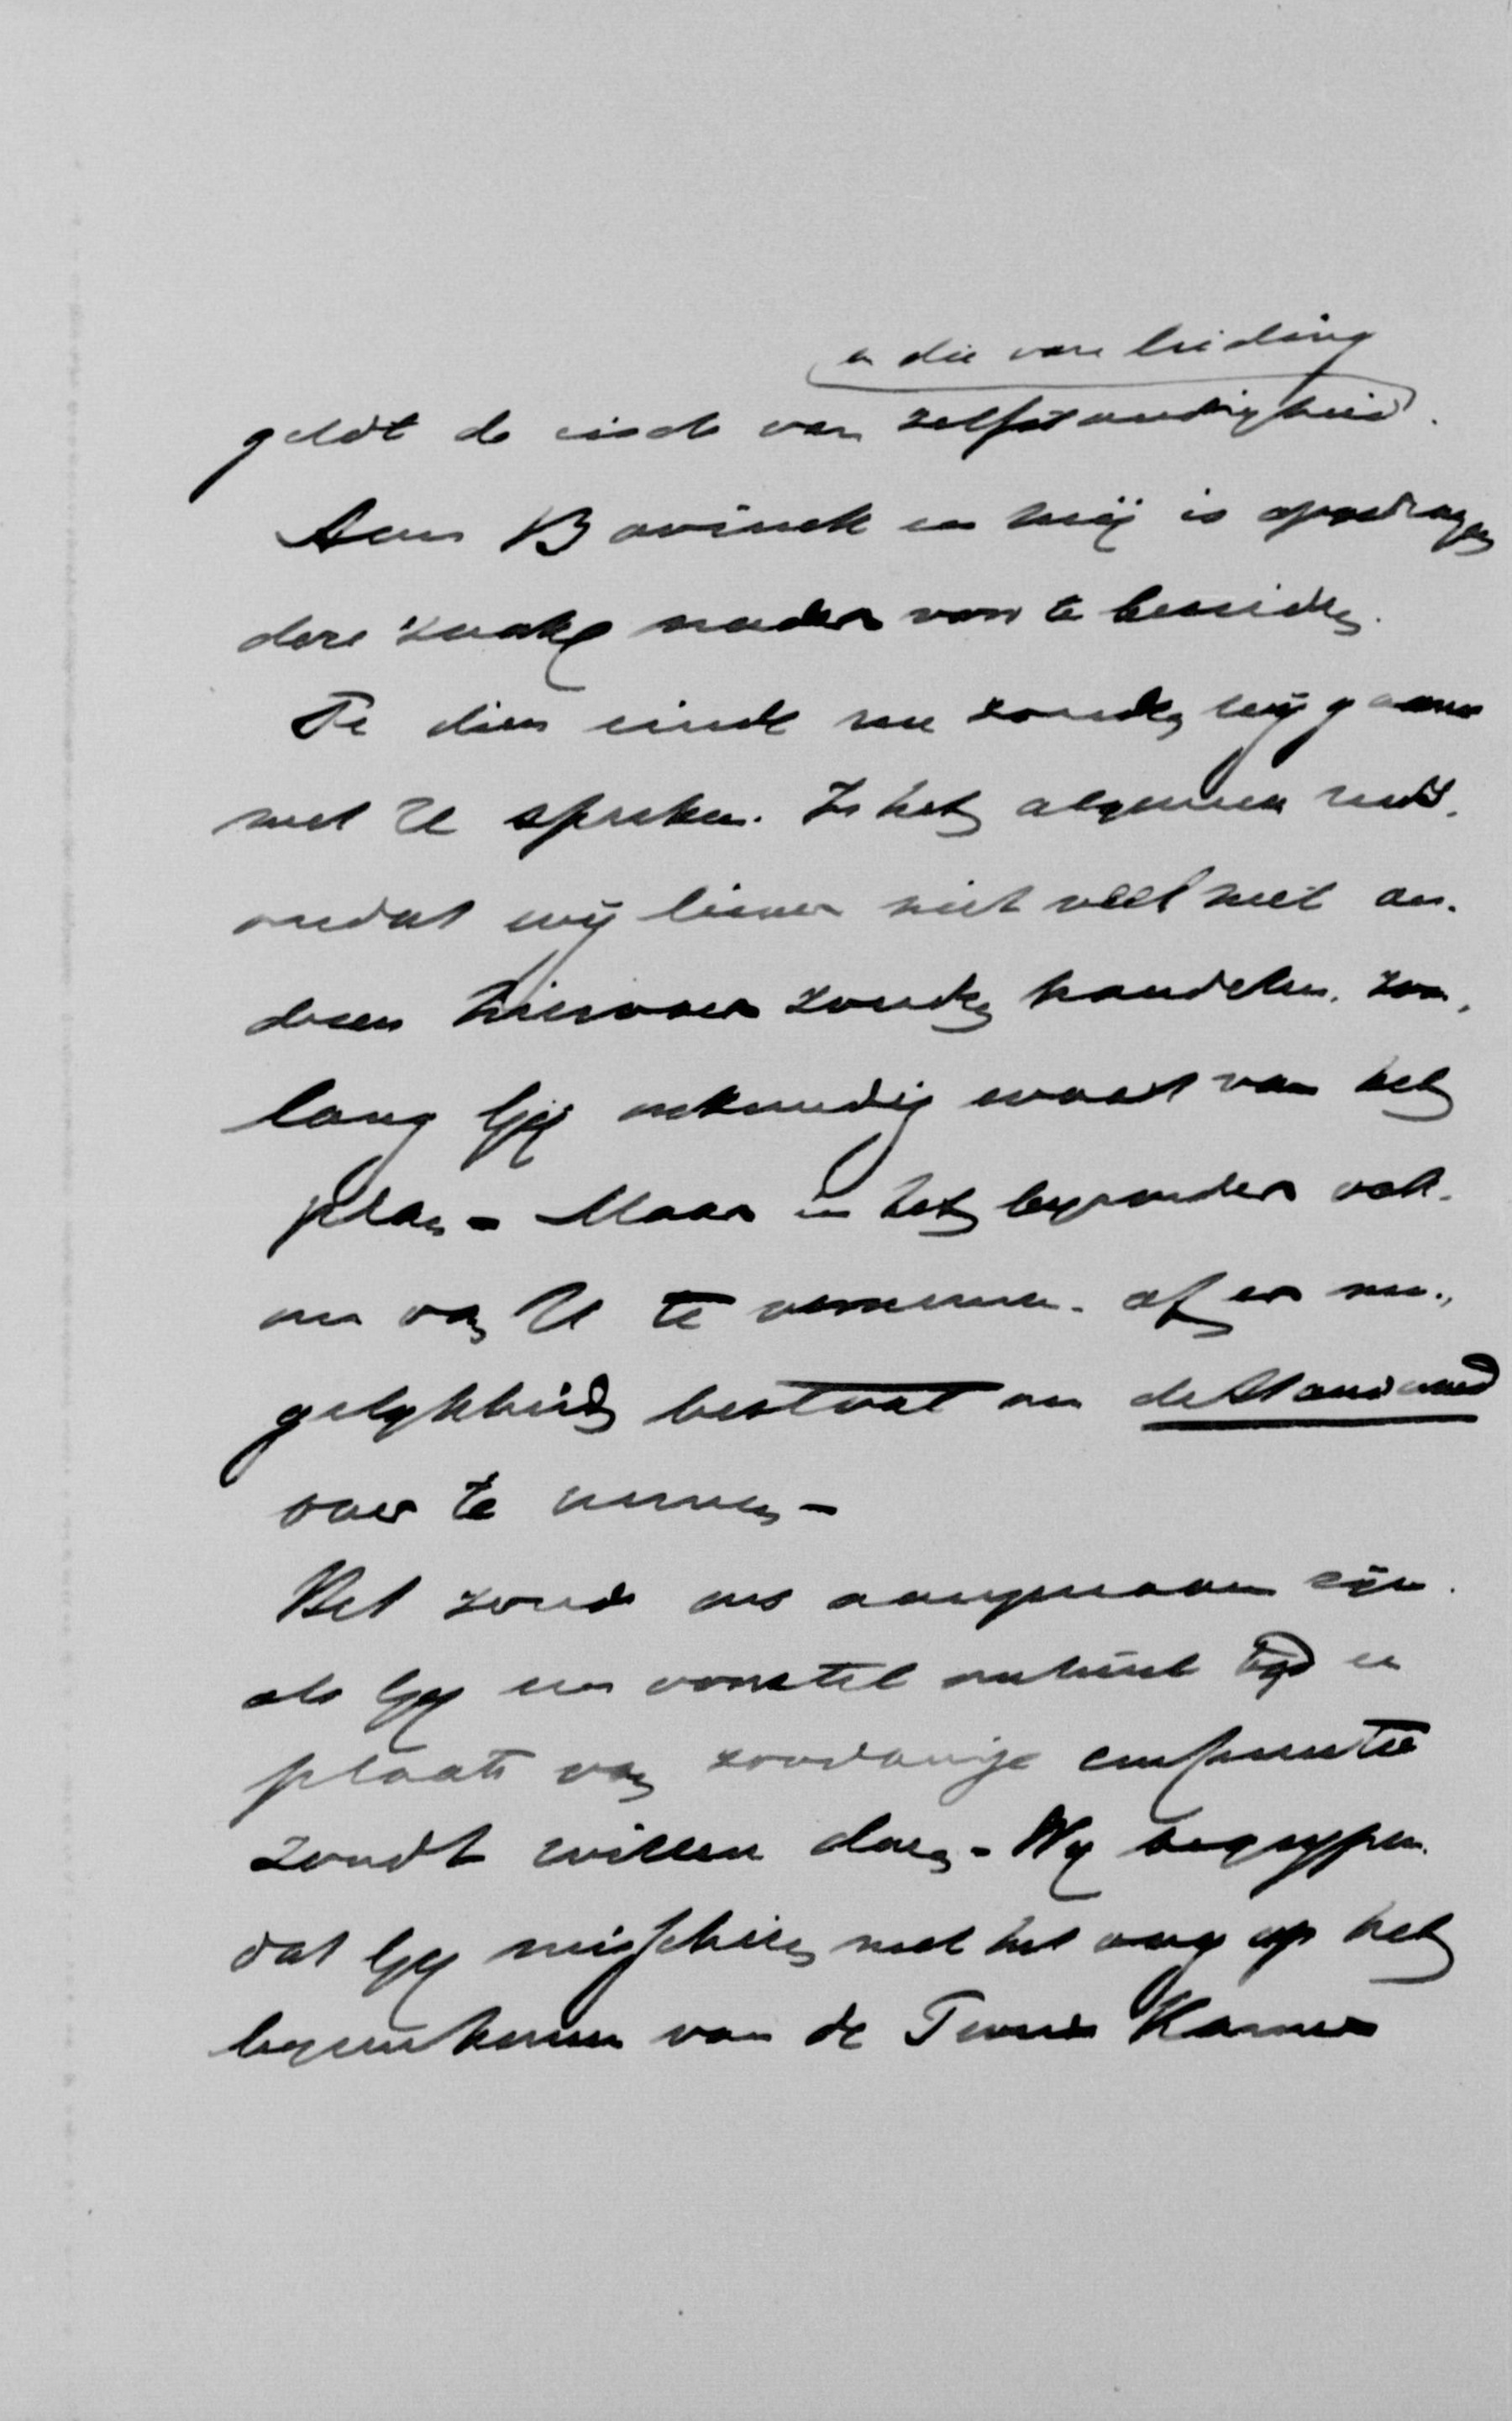 en die van leiding
geldt de eisch van zelfstandigheid.
Aan Bavinck en mij is opgedragen
deze zaak nader voor te bereiden.
Te dien einde nu zouden wij gaarne
met U spreken. In het algemeen reeds.
omdat wij liever niet veel met an-
deren hierover zouden handelen, zoo,
lang Gij onkundig waart van het
plan - Maar in het bijzonder ook.
om van U te vernemen. of er mo-,
gelykheid bestaat om de Standaard
over te nemen -
Het zoude ons aangenaam zijn.
als Gij een voorstel omtrent tijd en
plaats van zoodanige conferentie
zoudt willen doen - Wy begrypen.
dat Gij misschien met het oog op het
byeenkomen van de Tweede Kamer